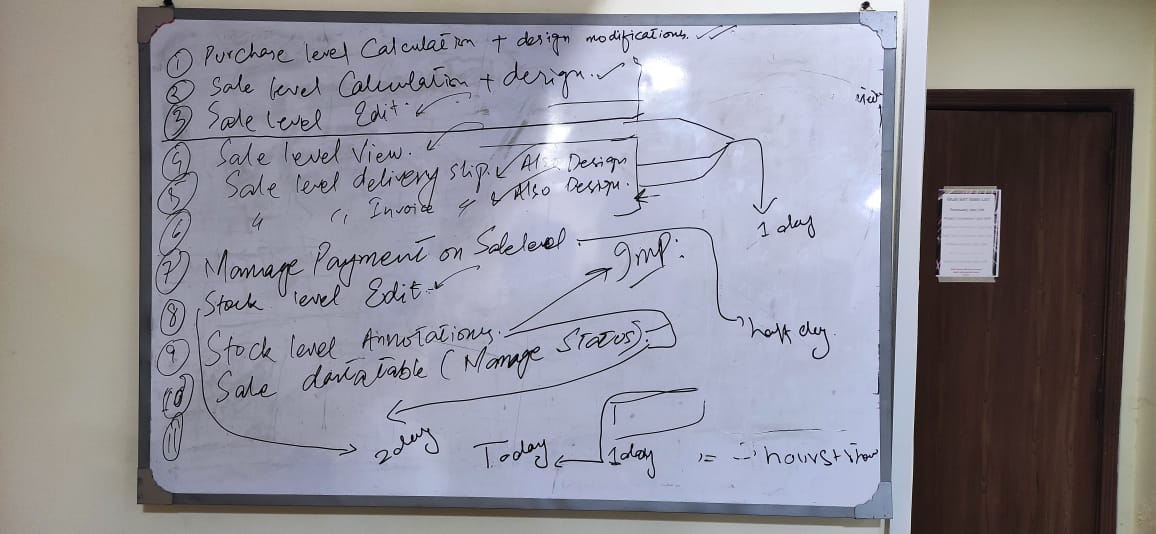 ① Purchase level Calculation + design modifications.
② Sale level Calculation + design.
③ Sale level Edit.
④ Sale level View.
⑤ Sale level delivery slip. Also Design
⑥ " " Invoice " & Also Design.
1 day
⑦ Manage Payment on Sale level.
Imp:
⑧ Stock level Edit.
half day.
⑨ Stock level Annotations.
⑩ Sale datatable (Manage Status).
⑪
2 day
Today
1 day
= hours +